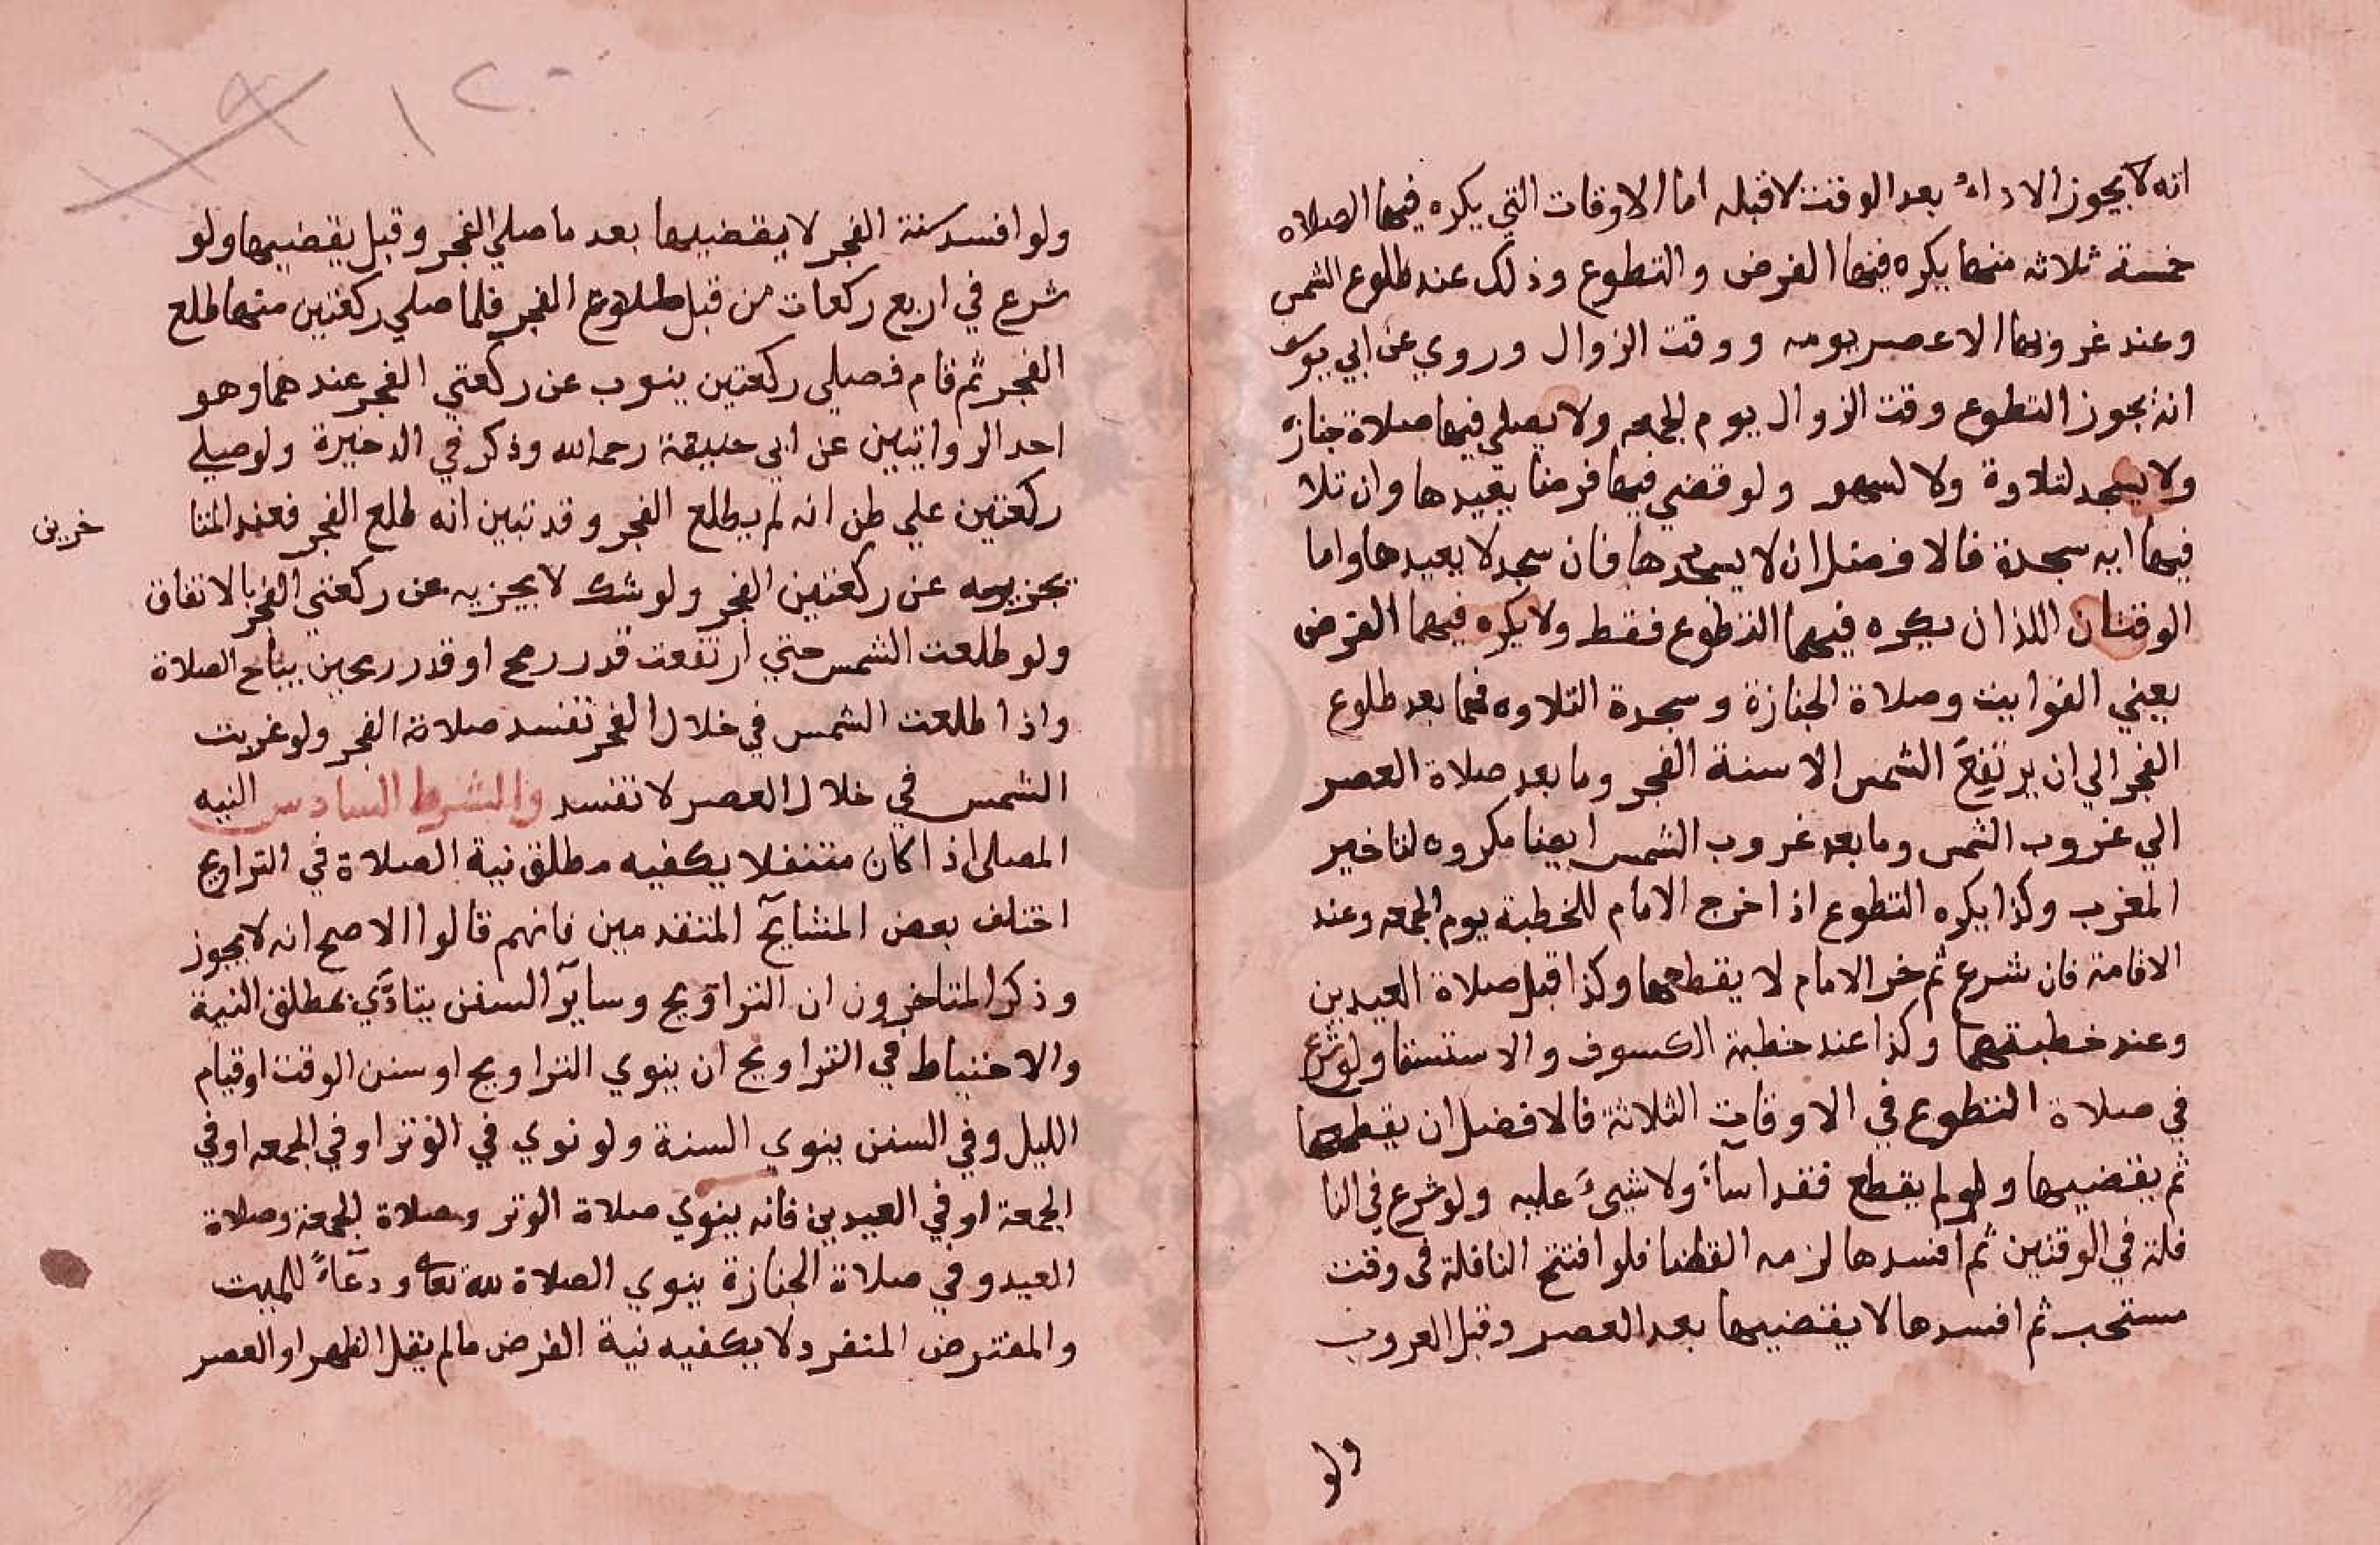 انه لا يجوز الاداء بعد الوقت لا قبله اما الاوقات التي يكره فيها الصلاه
خمسة ثلاثه منها يكره فيها الفرض والتطوع وذلك عند طلوع الشمس
وعند غروبها الا عصر يومه ووقت الزوال وروي عن ابي يوسف
انه يجوز التطوع وقت الزوال يوم الجمعه ولا يصلي فيها صلاة جنازة
ولا يسجد لتلاوة ولا لسهو ولو قضي فيها فرضا يعيدها وان تلا
فيها ايه سجدة فالافضل ان لا يسجدها فان سجد لا يعيدها واما
الوقتان اللذان يكره فيهما التطوع فقط ولا يكره فيهما الفرض
يعني الفوايت وصلاة الجنازة وسجدة التلاوه فما بعد طلوع
الفجر الي ان يرتفع الشمس الا سنة الفجر وما بعد صلاة العصر
الي غروب الشمس وما بعد غروب الشمس ايضا مكروه لتاخير
المغرب وكذا يكره التطوع اذا خرج الامام للخطبة يوم الجمعه وعند
الاقامة فان شرع ثم خر الامام لا يقطعها وكذا قبل صلاة العيدين
وعند خطبتهما وكذا عند خطبة الكسوف والاستسقا ولو شرع
في صلاة التطوع في الاوقات الثلاثة فالافضل ان يقطعها
ثم يقضيها ولو لم يقطع فقد اسآء ولا شيء عليه ولو شرع في النا
فلة في الوقتين ثم افسدها لزمه القضا فلو افتتح النافلة في وقت
مستحب ثم افسدها لا يقضيها بعد العصر وقبل الغروب
ولو
١٢٠
ولو افسد سنة الفجر لا يقضيها بعد ما صلي الفجر وقيل يقضيها ولو
شرع في اربع ركعات من قبل طلوع الفجر فلما صلي ركعتين منها طلع
الفجر ثم قام فصلي ركعتين ينوب عن ركعتي الفجر عندهما وهو
احد الروايتين عن ابي حنيفة رحمه الله وذكر في الدخيرة ولو صلي
ركعتين علي ظن انه لم يطلع الفجر وقد تبين انه طلع الفجر فعند المتا
خرين
يجزيه عن ركعتين الفجر ولو شك لا يجزيه عن ركعتي الفجر بالاتفاق
ولو طلعت الشمس حتي ارتفعت قدر رمح او قدر رمحين يباح الصلاة
واذا طلعت الشمس في خلال الفجر تفسد صلاة الفجر ولو غربت
الشمس في خلال العصر لا تفسد والشرط السادس النيه
المصلي اذا كان متنفلا يكفيه مطلق نية الصلاة في التراويح
اختلف بعض المشايخ المتقدمين فانهم قالوا الاصح انه لا يجوز
وذكر المتاخرون ان التراويح وساير السنن يتادي بمطلق النية
والاحتياط في التراويح ان ينوي التراويح او سنن الوقت او قيام
الليل وفي السنن ينوي السنة ولو نوي في الوتر او في الجمعه او في
الجمعة او في العيدين فانه ينوي صلاة الوتر وصلاة الجمعة وصلاة
العيد وفي صلاة الجنازة ينوي الصلاة لله تعالى ودعآء للميت
والمفترض المنفرد لا يكفيه نية الفرض ما لم يقل الظهر او العصر